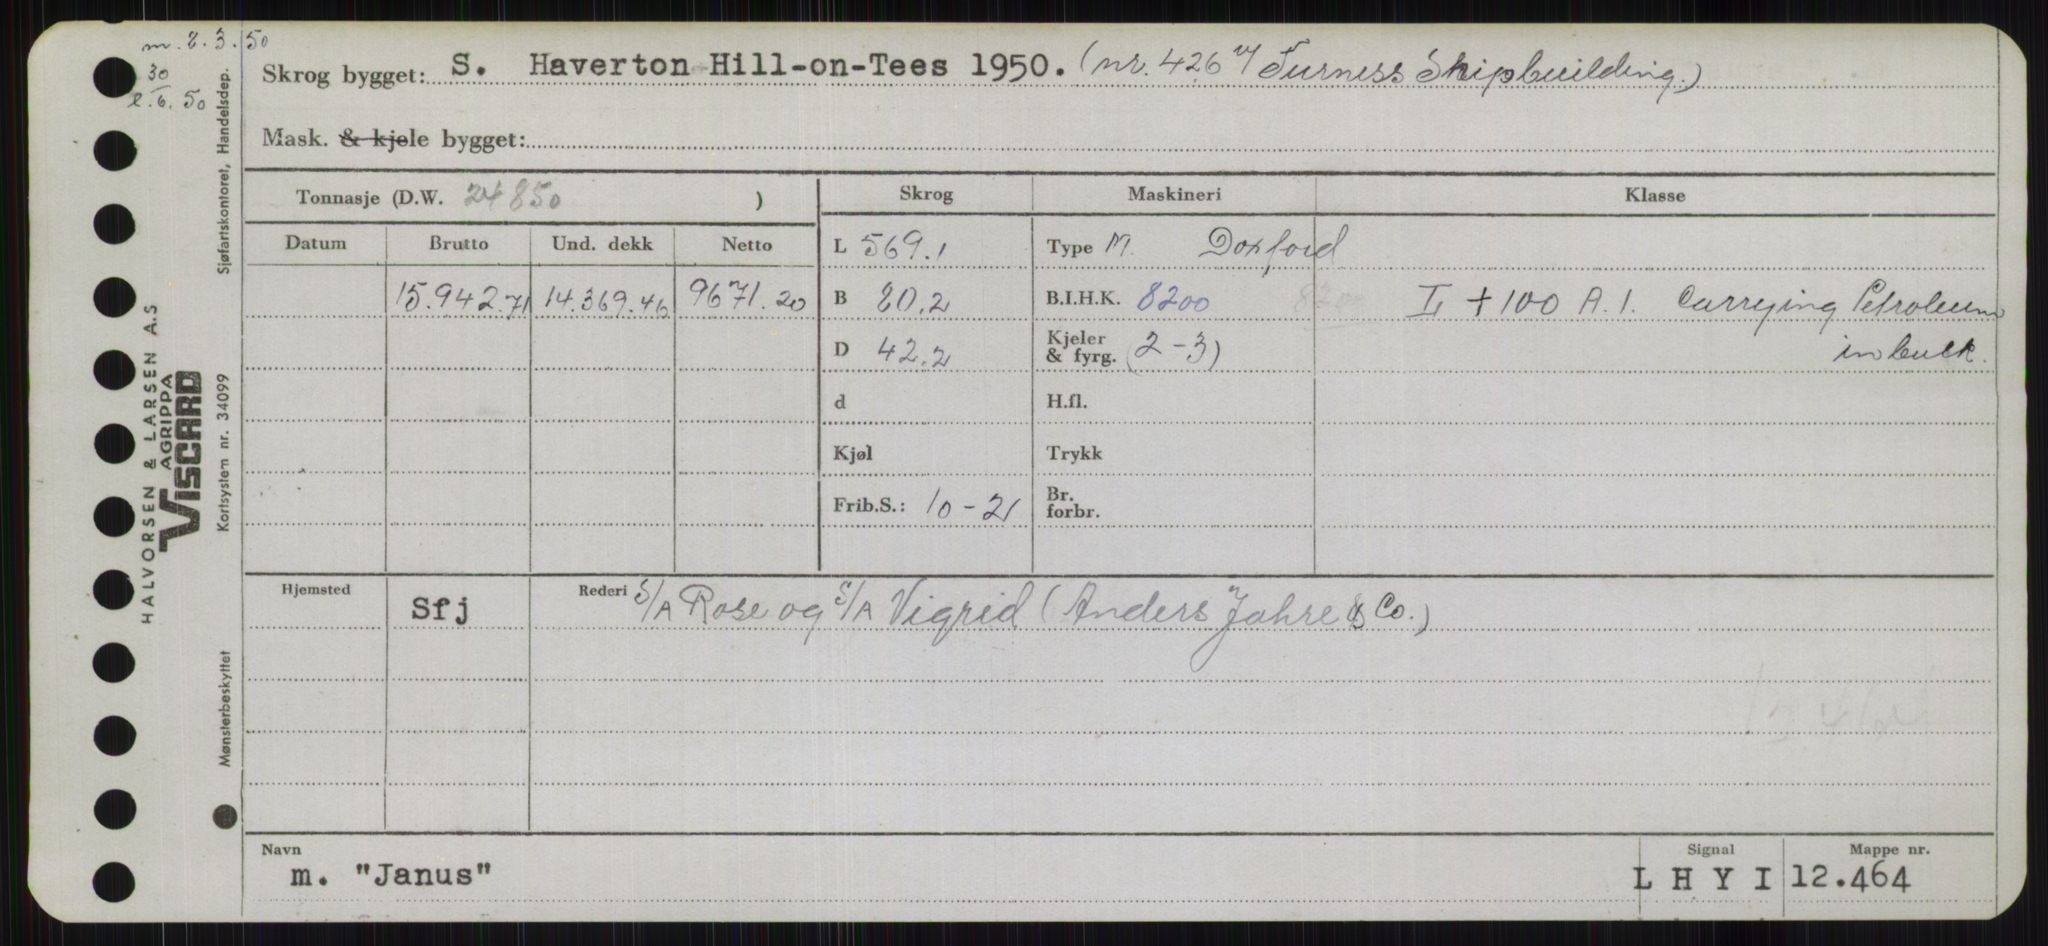 m. 2.3.50
30
2.6.50
Skrog bygget: S. Haverton Hill-on-Tees 1950. (nr. 426 v/ Furness Shipbuilding.)
Mask. & kjele bygget:
Tonnasje (D.W. 24850 )
Skrog Maskineri Klasse
Datum Brutto Und. dekk Netto
L 569.1 Type M. Doxford
15.942.71 14.369.46 9671.20 B 80.2 B.I.H.K. 8200 8200 + 100 A.1. Carrying Petroleum
in bulk.
D 42.2 Kjeler & fyrg. (2-3)
d H.fl.
Kjøl Trykk
Frib.S.: 10-21 Br. forbr.
Hjemsted Sfj Rederi S/A Rose og S/A Vigrid (Anders Jahre & Co.)
Navn m. "Janus"
Signal L H Y I
Mappe nr. 12.464
Sjøfartskontoret, Handelsdep.
Kortsystem nr. 34099
Mønsterbeskyttet
HALVORSEN & LARSEN A.S
AGRIPPA
VISCARD